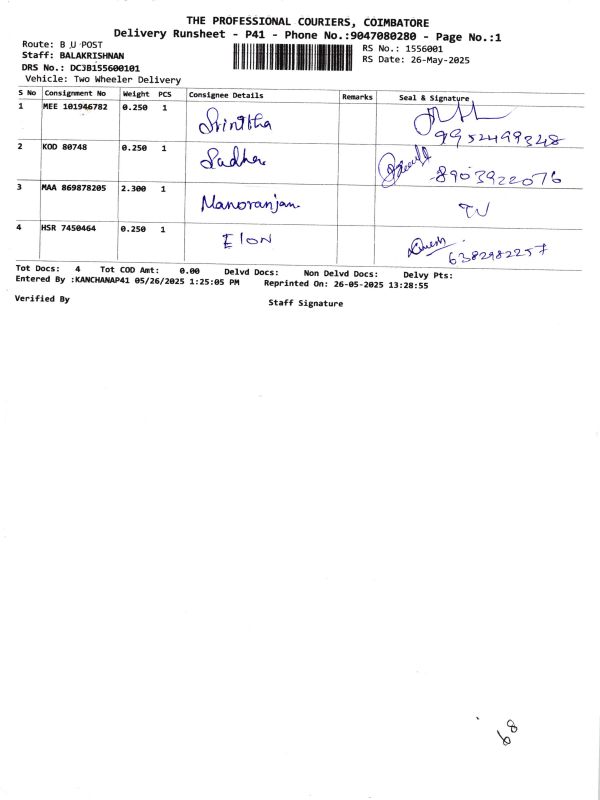 THE PROFESSIONAL COURIERS, COIMBATORE
Delivery Runsheet - P41 - Phone No.:9047080280 - Page No.:1
Route: B U POST
Staff: BALAKRISHNAN
DRS No.: DC3B155600101
Vehicle: Two Wheeler Delivery
RS No.: 1556001
RS Date: 26-May-2025
S No Consignment No Weight PCS Consignee Details Remarks Seal & Signature
1 MEE 101946782 0.250 1 Srinitha 9952499348
2 KOD 80748 0.250 1 Sadhu 8903922076
3 MAA 869878205 2.300 1 Manoranjan
4 HSR 7450464 0.250 1 Elon 6382982257
Tot Docs: 4 Tot COD Amt: 0.00 Delvd Docs: Non Delvd Docs: Delvy Pts:
Entered By :KANCHANAP41 05/26/2025 1:25:05 PM Reprinted On: 26-05-2025 13:28:55
Verified By Staff Signature
68